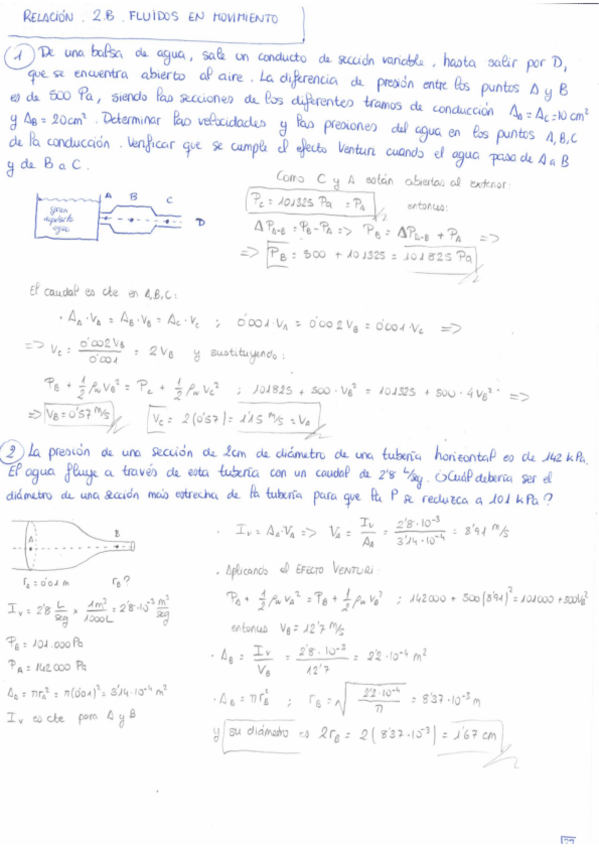 RELACIÓN . 2.B . FLUÍDOS EN MOVIMIENTO
1 De una balsa de agua, sale un conducto de sección variable, hasta salir por D,
que se encuentra abierto al aire. La diferencia de presión entre los puntos A y B
es de 500 Pa, siendo las secciones de los diferentes tramos de conducción A_A = A_C = 10 cm²
y A_B = 20 cm². Determinar las velocidades y las presiones del agua en los puntos A, B, C
de la conducción. Verificar que se cumple el efecto Venturi cuando el agua pasa de A a B
y de B a C.
Como C y A están abiertas al exterior:
P_C = 101325 Pa = P_A entonces:
ΔP_A-B = P_B - P_A => P_B = ΔP_A-B + P_A =>
=> P_B = 500 + 101325 = 101825 Pa
gran
depósito
agua
A B C D
El caudal es cte en A, B, C:
· A_A · V_A = A_B · V_B = A_C · V_C ; 0'001 · V_A = 0'002 V_B = 0'001 · V_C =>
=> V_C = 0'002 V_B / 0'001 = 2 V_B y sustituyendo:
P_B + 1/2 ρ_w V_B² = P_C + 1/2 ρ_w V_C² ; 101825 + 500 · V_B² = 101325 + 500 · 4 V_B² =>
=> V_B = 0'57 m/s V_C = 2 (0'57) = 1'15 m/s = V_A
2 La presión de una sección de 2cm de diámetro de una tubería horizontal es de 142 kPa.
El agua fluye a través de esta tubería con un caudal de 2'8 L/seg. ¿Cuál debería ser el
diámetro de una sección más estrecha de la tubería para que la P se reduzca a 101 kPa?
A B
r_A = 0'01 m r_B?
I_V = 2'8 L/seg × 1m³/1000L = 2'8·10⁻³ m³/seg
P_B = 101.000 Pa
P_A = 142000 Pa
A_A = πr_A² = π(0'01)² = 3'14·10⁻⁴ m²
I_V es cte para A y B
· I_V = A_A · V_A => V_A = I_V / A_A = 2'8·10⁻³ / 3'14·10⁻⁴ = 8'91 m/s
· Aplicando el EFECTO VENTURI:
P_A + 1/2 ρ_w V_A² = P_B + 1/2 ρ_w V_B² ; 142000 + 500 (8'91)² = 101000 + 500 V_B²
entonces V_B = 12'7 m/s
· A_B = I_V / V_B = 2'8·10⁻³ / 12'7 = 2'2·10⁻⁴ m²
· A_B = πr_B² ; r_B = √(2'2·10⁻⁴ / π) = 8'37·10⁻³ m
y su diámetro es 2r_B = 2 (8'37·10⁻³) = 1'67 cm